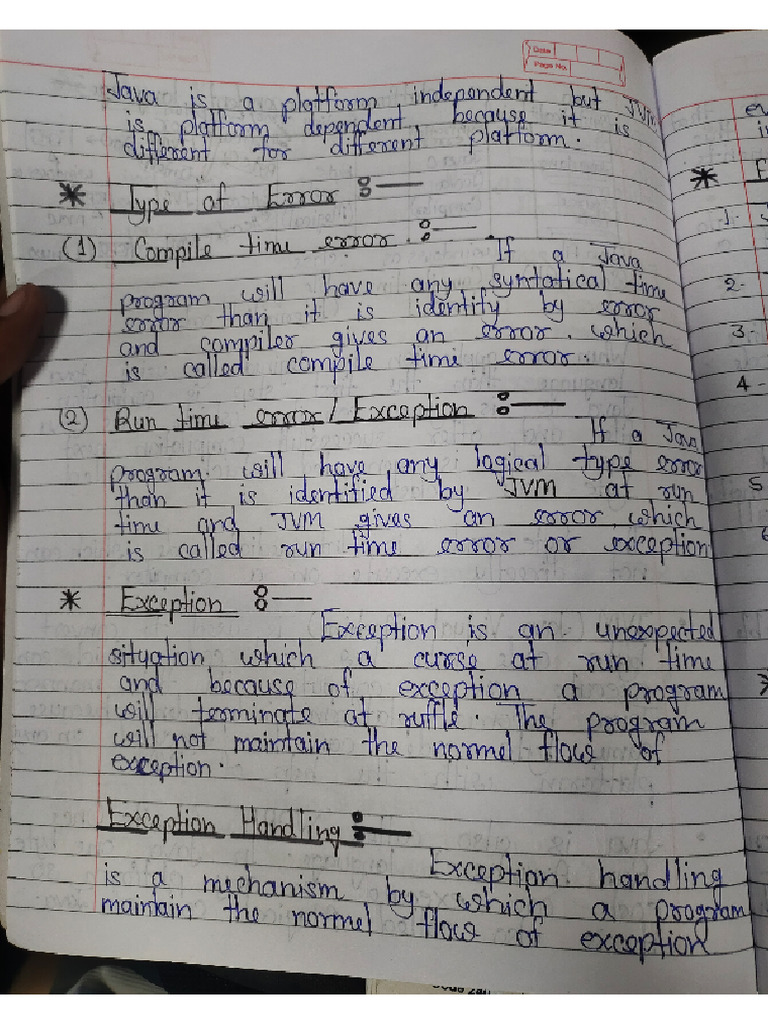 Date
Page No.
Java is a platform independent but JVM
is platform dependent because it is
different for different platform.
* Type of Error :-
(1) Compile time error :-
If a Java
program will have any syntatical time
error than it is identify by error
and compiler gives an error. which
is called compile time error.
(2) Run time error / Exception :-
If a Java
program. will have any logical type error
than it is identified by JVM at run
time and JVM givas an error which
is called run time error or exception
* Exception :-
Exception is an unexpected
situation which a curse at run time
and because of exception a program
will terminate at ruffle. The program
will not maintain the normel flow of
exception.
Exception Handling :-
Exception handling
is a mechanism by which a program
maintain the normel flow of exception
*
1.
2.
3.
4.
5